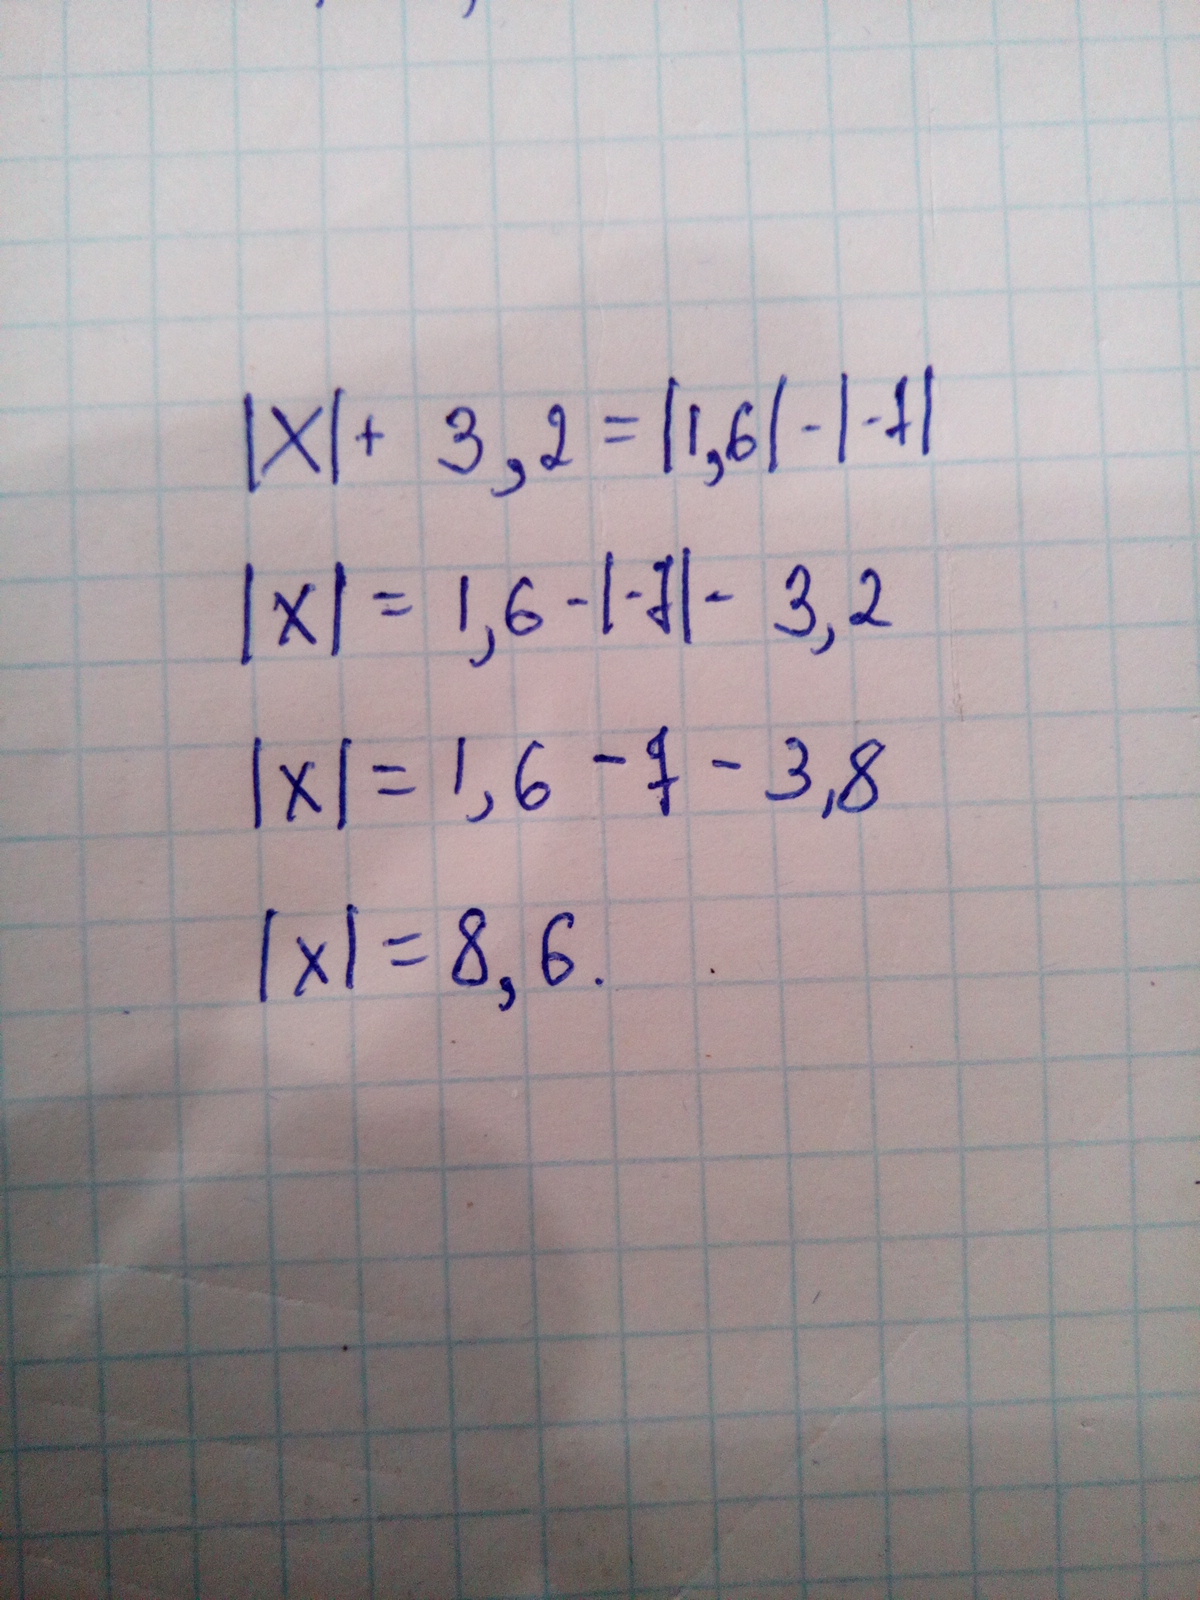 |x| + 3,2 = |1,6| - |-7|
|x| = 1,6 - |-7| - 3,2
|x| = 1,6 - 7 - 3,8
|x| = 8,6.